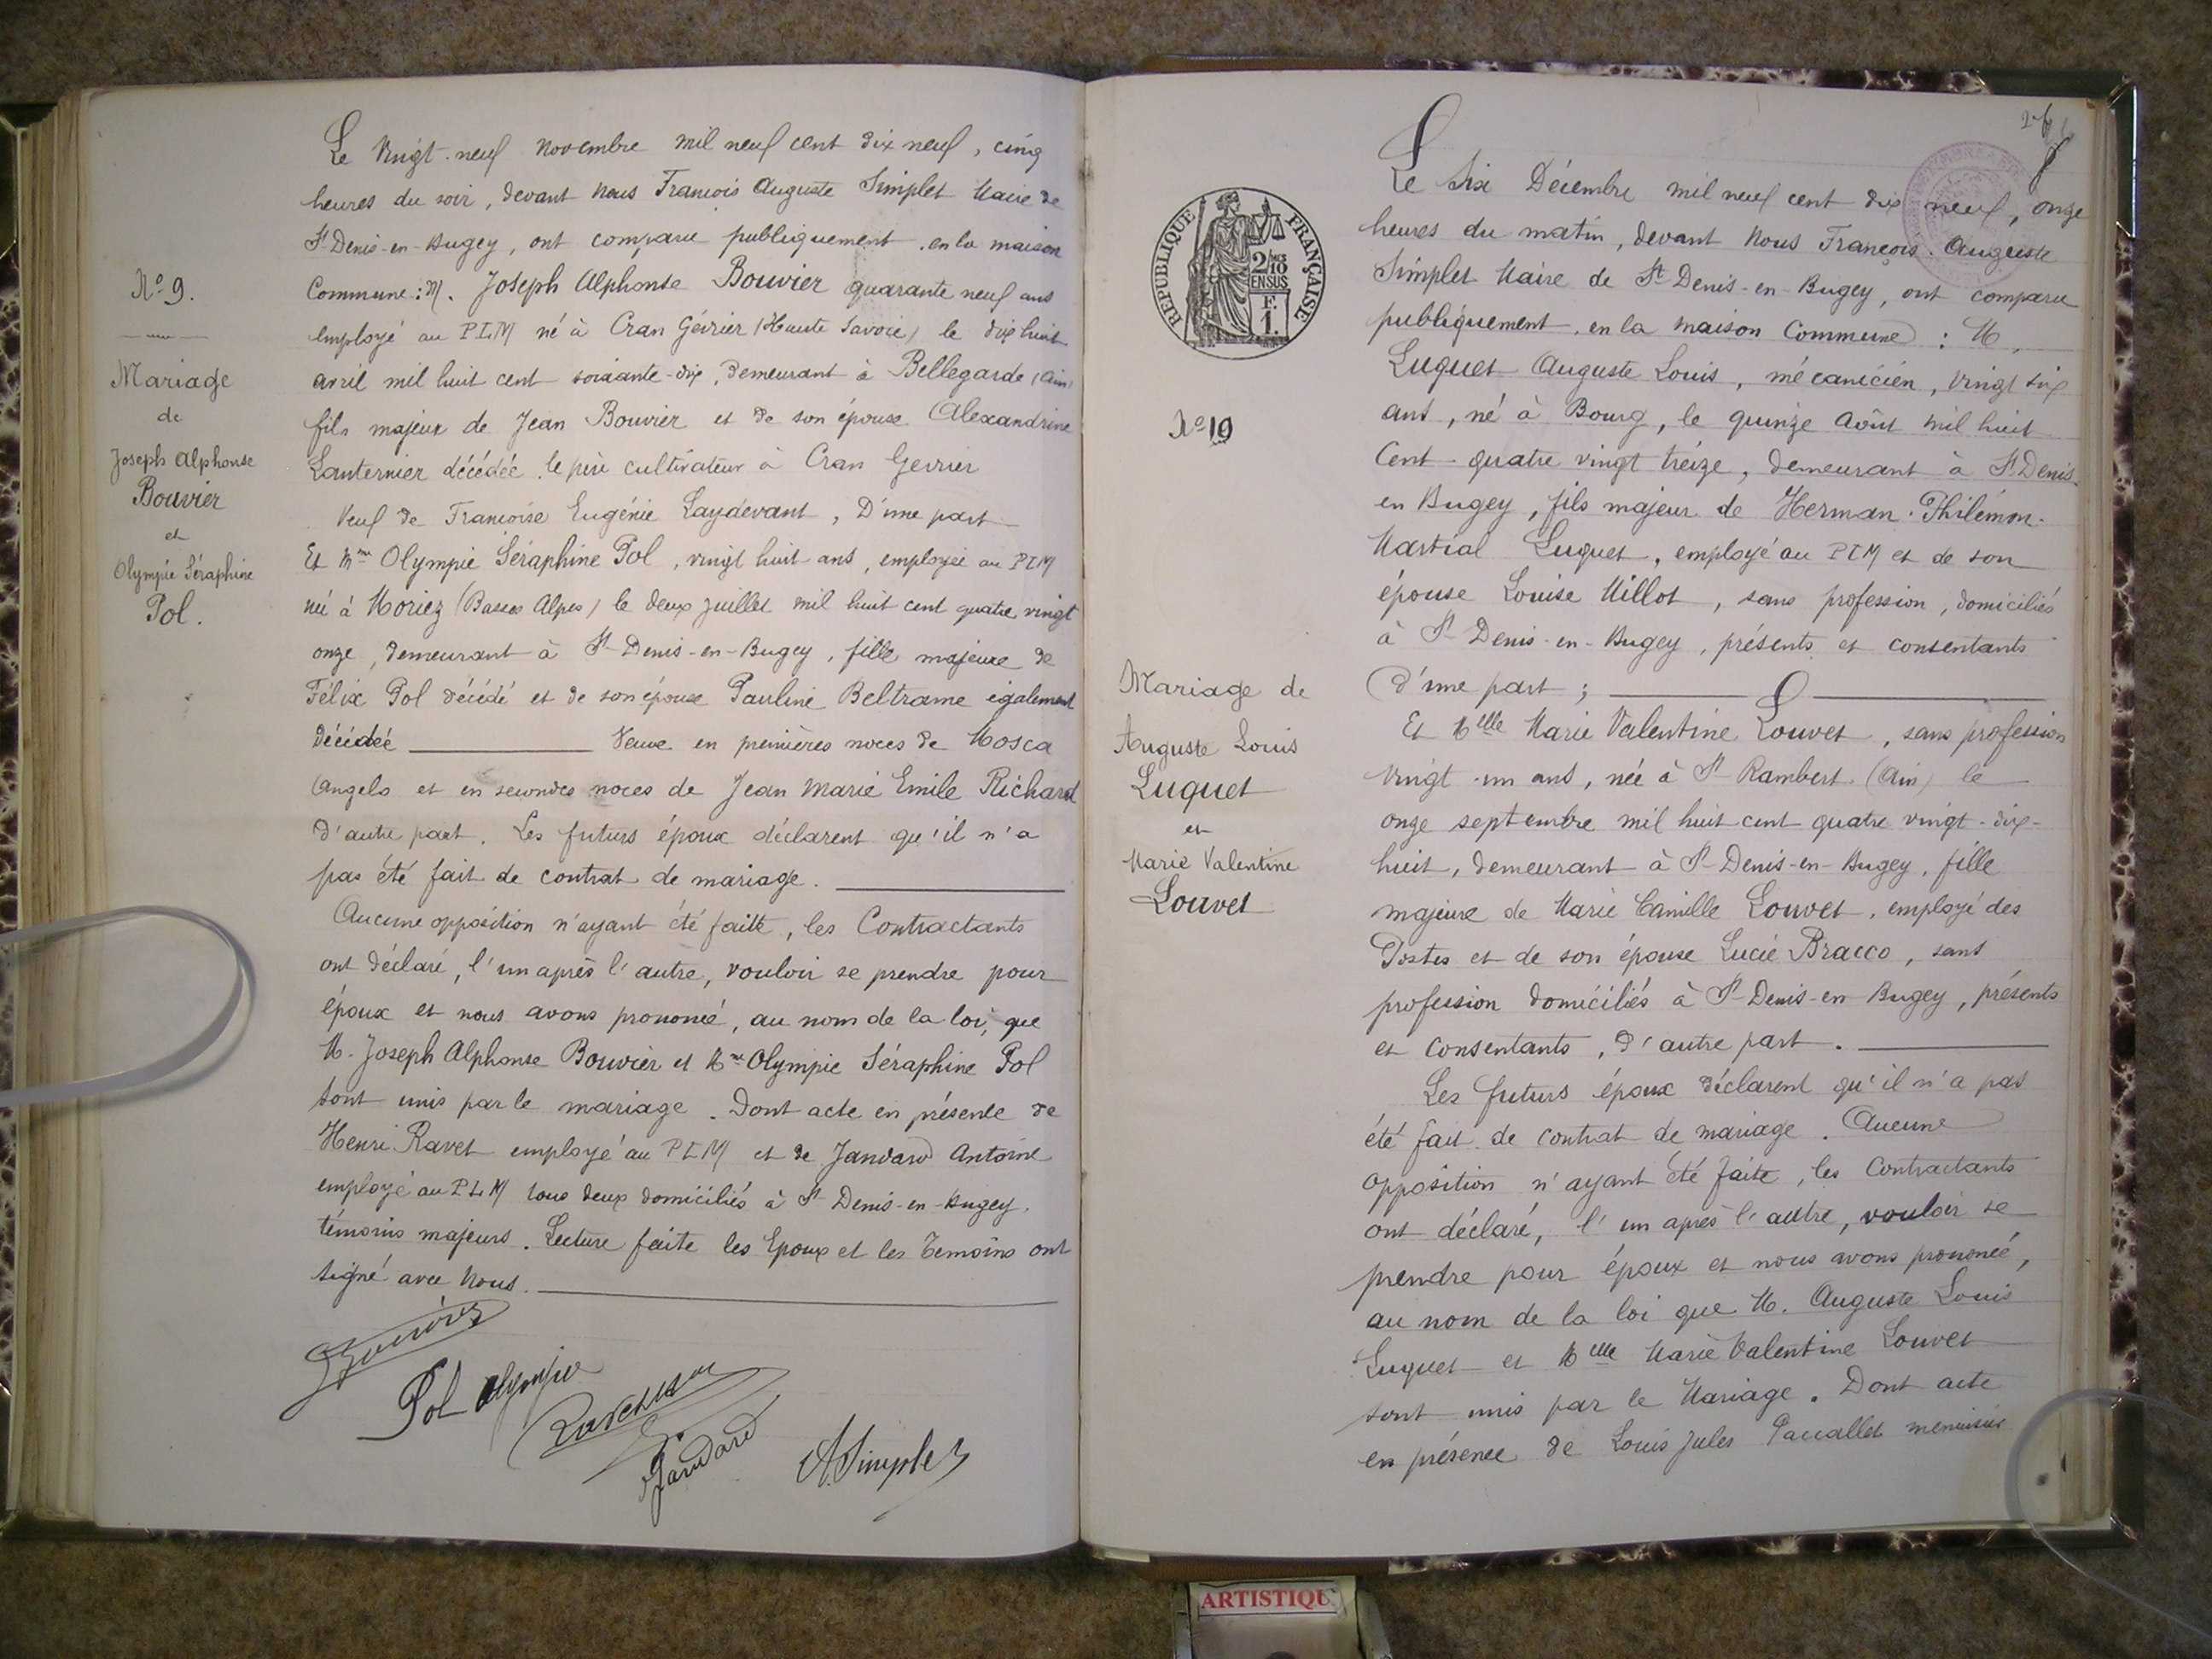 N° 9.
Mariage
de
Joseph Alphonse
Bouvier
et
Olympie Séraphine
Pol.
Le vingt-neuf novembre mil neuf cent dix neuf, cinq
heures du soir, devant nous François Auguste Simplet Maire de
St-Denis-en-Bugey, ont comparu publiquement en la maison
Commune : M. Joseph Alphonse Bouvier quarante neuf ans
employé au PLM né à Cran Gévrier (Haute Savoie) le dix huit
avril mil huit cent soixante-dix, demeurant à Bellegarde (Ain)
fils majeur de Jean Bouvier et de son épouse Alexandrine
Lanternier décédée le père cultivateur à Cran Gevrier
Veuf de Françoise Eugénie Laydevant, D'une part
Et Mme Olympie Séraphine Pol, vingt huit ans, employée au PLM
né à Moriez (Basses Alpes) le deux juillet mil huit cent quatre vingt
onze, demeurant à St-Denis-en-Bugey, fille majeure de
Félix Pol décédé et de son épouse Pauline Beltrame également
décédée Veuve en premières noces de Mosca
Angelo et en secondes noces de Jean Marie Emile Richard
d'autre part. Les futurs époux déclarent qu'il n'a
pas été fait de contrat de mariage.
Aucune opposition n'ayant été faite, les Contractants
ont déclaré, l'un après l'autre, vouloir se prendre pour
époux et nous avons prononcé, au nom de la loi, que
M. Joseph Alphonse Bouvier et Mme Olympie Séraphine Pol
sont unis par le mariage. Dont acte en présence de
Henri Ravet employé au PLM et de Jandard Antoine
employé au PLM tous deux domiciliés à St-Denis-en-Bugey,
témoins majeurs. Lecture faite les Epoux et les Temoins ont
signé avec nous.
Bouvier
Pol Olympie
Jandard
A. Simplet
RÉPUBLIQUE FRANÇAISE
2/10
EN SUS
F.
1.
N° 10
Mariage de
Auguste Louis
Luquet
et
Marie Valentine
Louvet
Le six Décembre mil neuf cent dix neuf, onze
heures du matin, devant Nous François Auguste
Simplet Maire de St-Denis-en-Bugey, ont comparu
publiquement en la maison Commune : M.
Luquet Auguste Louis, mécanicien, vingt six
ans, né à Bourg, le quinze Août mil huit
Cent-quatre vingt treize, demeurant à St Denis-
en Bugey, fils majeur de Herman-Philémon-
Martial Luquet, employé au PLM et de son
épouse Louise Millot, sans profession, domiciliés
à St-Denis-en-Bugey, présents et consentants
D'une part ;
Et Melle Marie Valentine Louvet, sans profession
vingt-un ans, née à St Rambert (Ain) le
onze septembre mil huit cent quatre vingt-dix-
huit, demeurant à St-Denis-en-Bugey, fille
majeure de Marie Camille Louvet, employé des
Postes et de son épouse Lucie Bracco, sans
profession domiciliés à St-Denis-en Bugey, présents
et consentants, d'autre part.
Les futurs époux déclarent qu'il n'a pas
été fait de contrat de mariage. Aucune
opposition n'ayant été faite, les Contractants
ont déclaré, l'un après l'autre, vouloir se
prendre pour époux et nous avons prononcé,
au nom de la loi que M. Auguste Louis
Luquet et Melle Marie Valentine Louvet
sont unis par le Mariage. Dont acte
en présence de Louis Jules Paccallet menuisier
ARTISTIQU